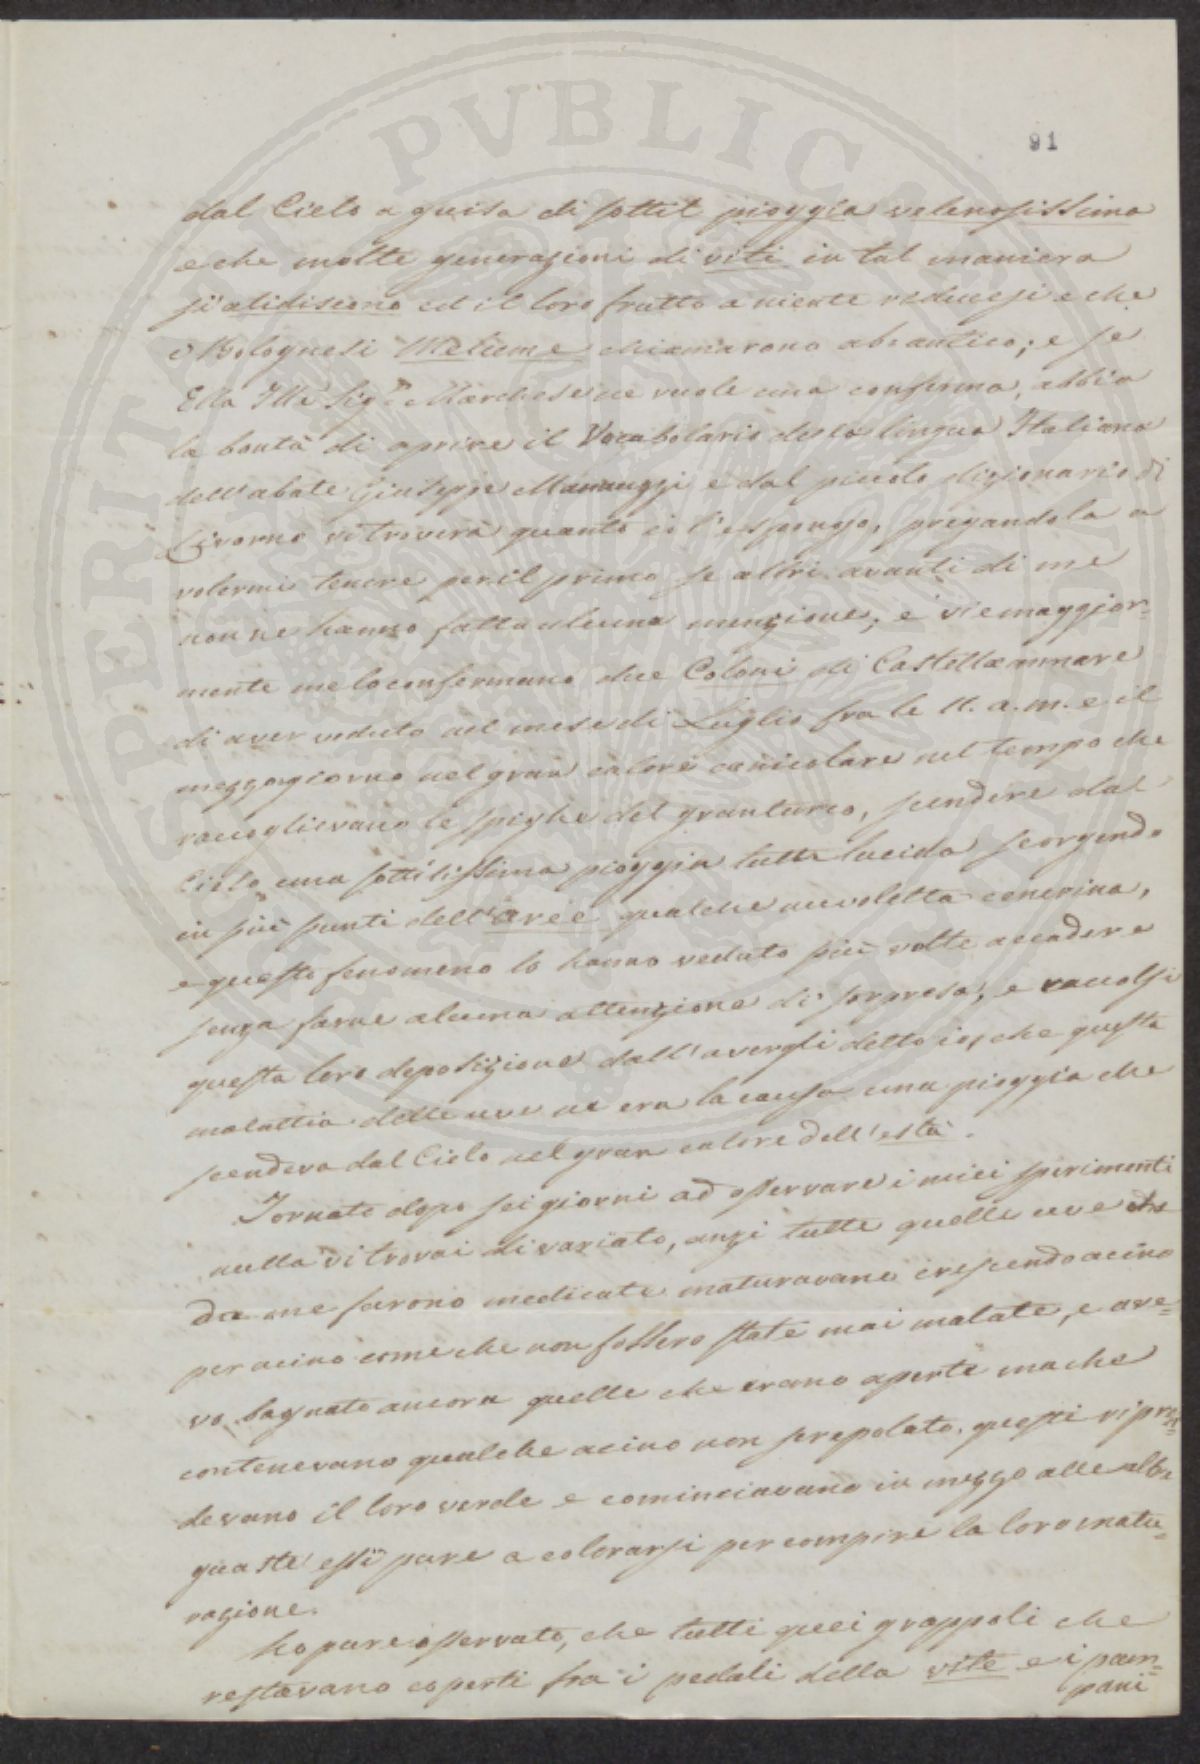 91
dal Cielo a guisa di sottil pioggia velenosissima
e che molte generazioni di viti in tal maniera
si alidiscono ed il loro frutto a niente riducesi e che
i Bolognesi Melume chiamarono ab-antico; e se
Ella Illᵐᵃ Sigʳ Marchese ne vuole una conferma, abbia
la bontà di aprire il Vocabolario della lingua Italiana
dell'abate Giuseppe Manuzzi e dal piccolo dizionario di
Livorno vi troverà quanto io l'espongo, pregandola a
volermi tenere per il primo se altri avanti di me
non ne hanno fatta alcuna menzione; e viemaggior-
mente me lo confermano due Coloni di Castellammare
di aver veduto nel mese di Luglio fra le 11. a.m. e il
mezzogiorno nel gran calore canicolare nel tempo che
raccoglievano le spighe del granturco, scendere dal
Cielo una sottilissima pioggia tutta lucida scorgendo
in più punti dell'aree qualche nuvoletta cenerina,
e questo fenomeno lo hanno veduto più volte accadere
senza farne alcuna attenzione di sorpresa, e raccolsi
questa loro deposizione dall'avergli detto io, che questa
malattia delle uve ne era la causa una pioggia che
scendeva dal Cielo nel gran calore dell'està.
Tornato dopo sei giorni ad osservare i miei sperimenti
nulla vi trovai di variato, anzi tutte quelle uve che
da me furono medicate maturavano crescendo acino
per acino come che non fossero state mai malate, e ave=
vo bagnato ancora quelle che erano aperte ma che
contenevano qualche acino non screpolato, questi ripren=
devano il loro verde e cominciavano in mezzo alle altre
guaste essi pure a colorarsi per compire la loro matu=
razione.
Ho pure osservato, che tutti quei grappoli che
restavano coperti fra i pedali della vite e i pam=
pani